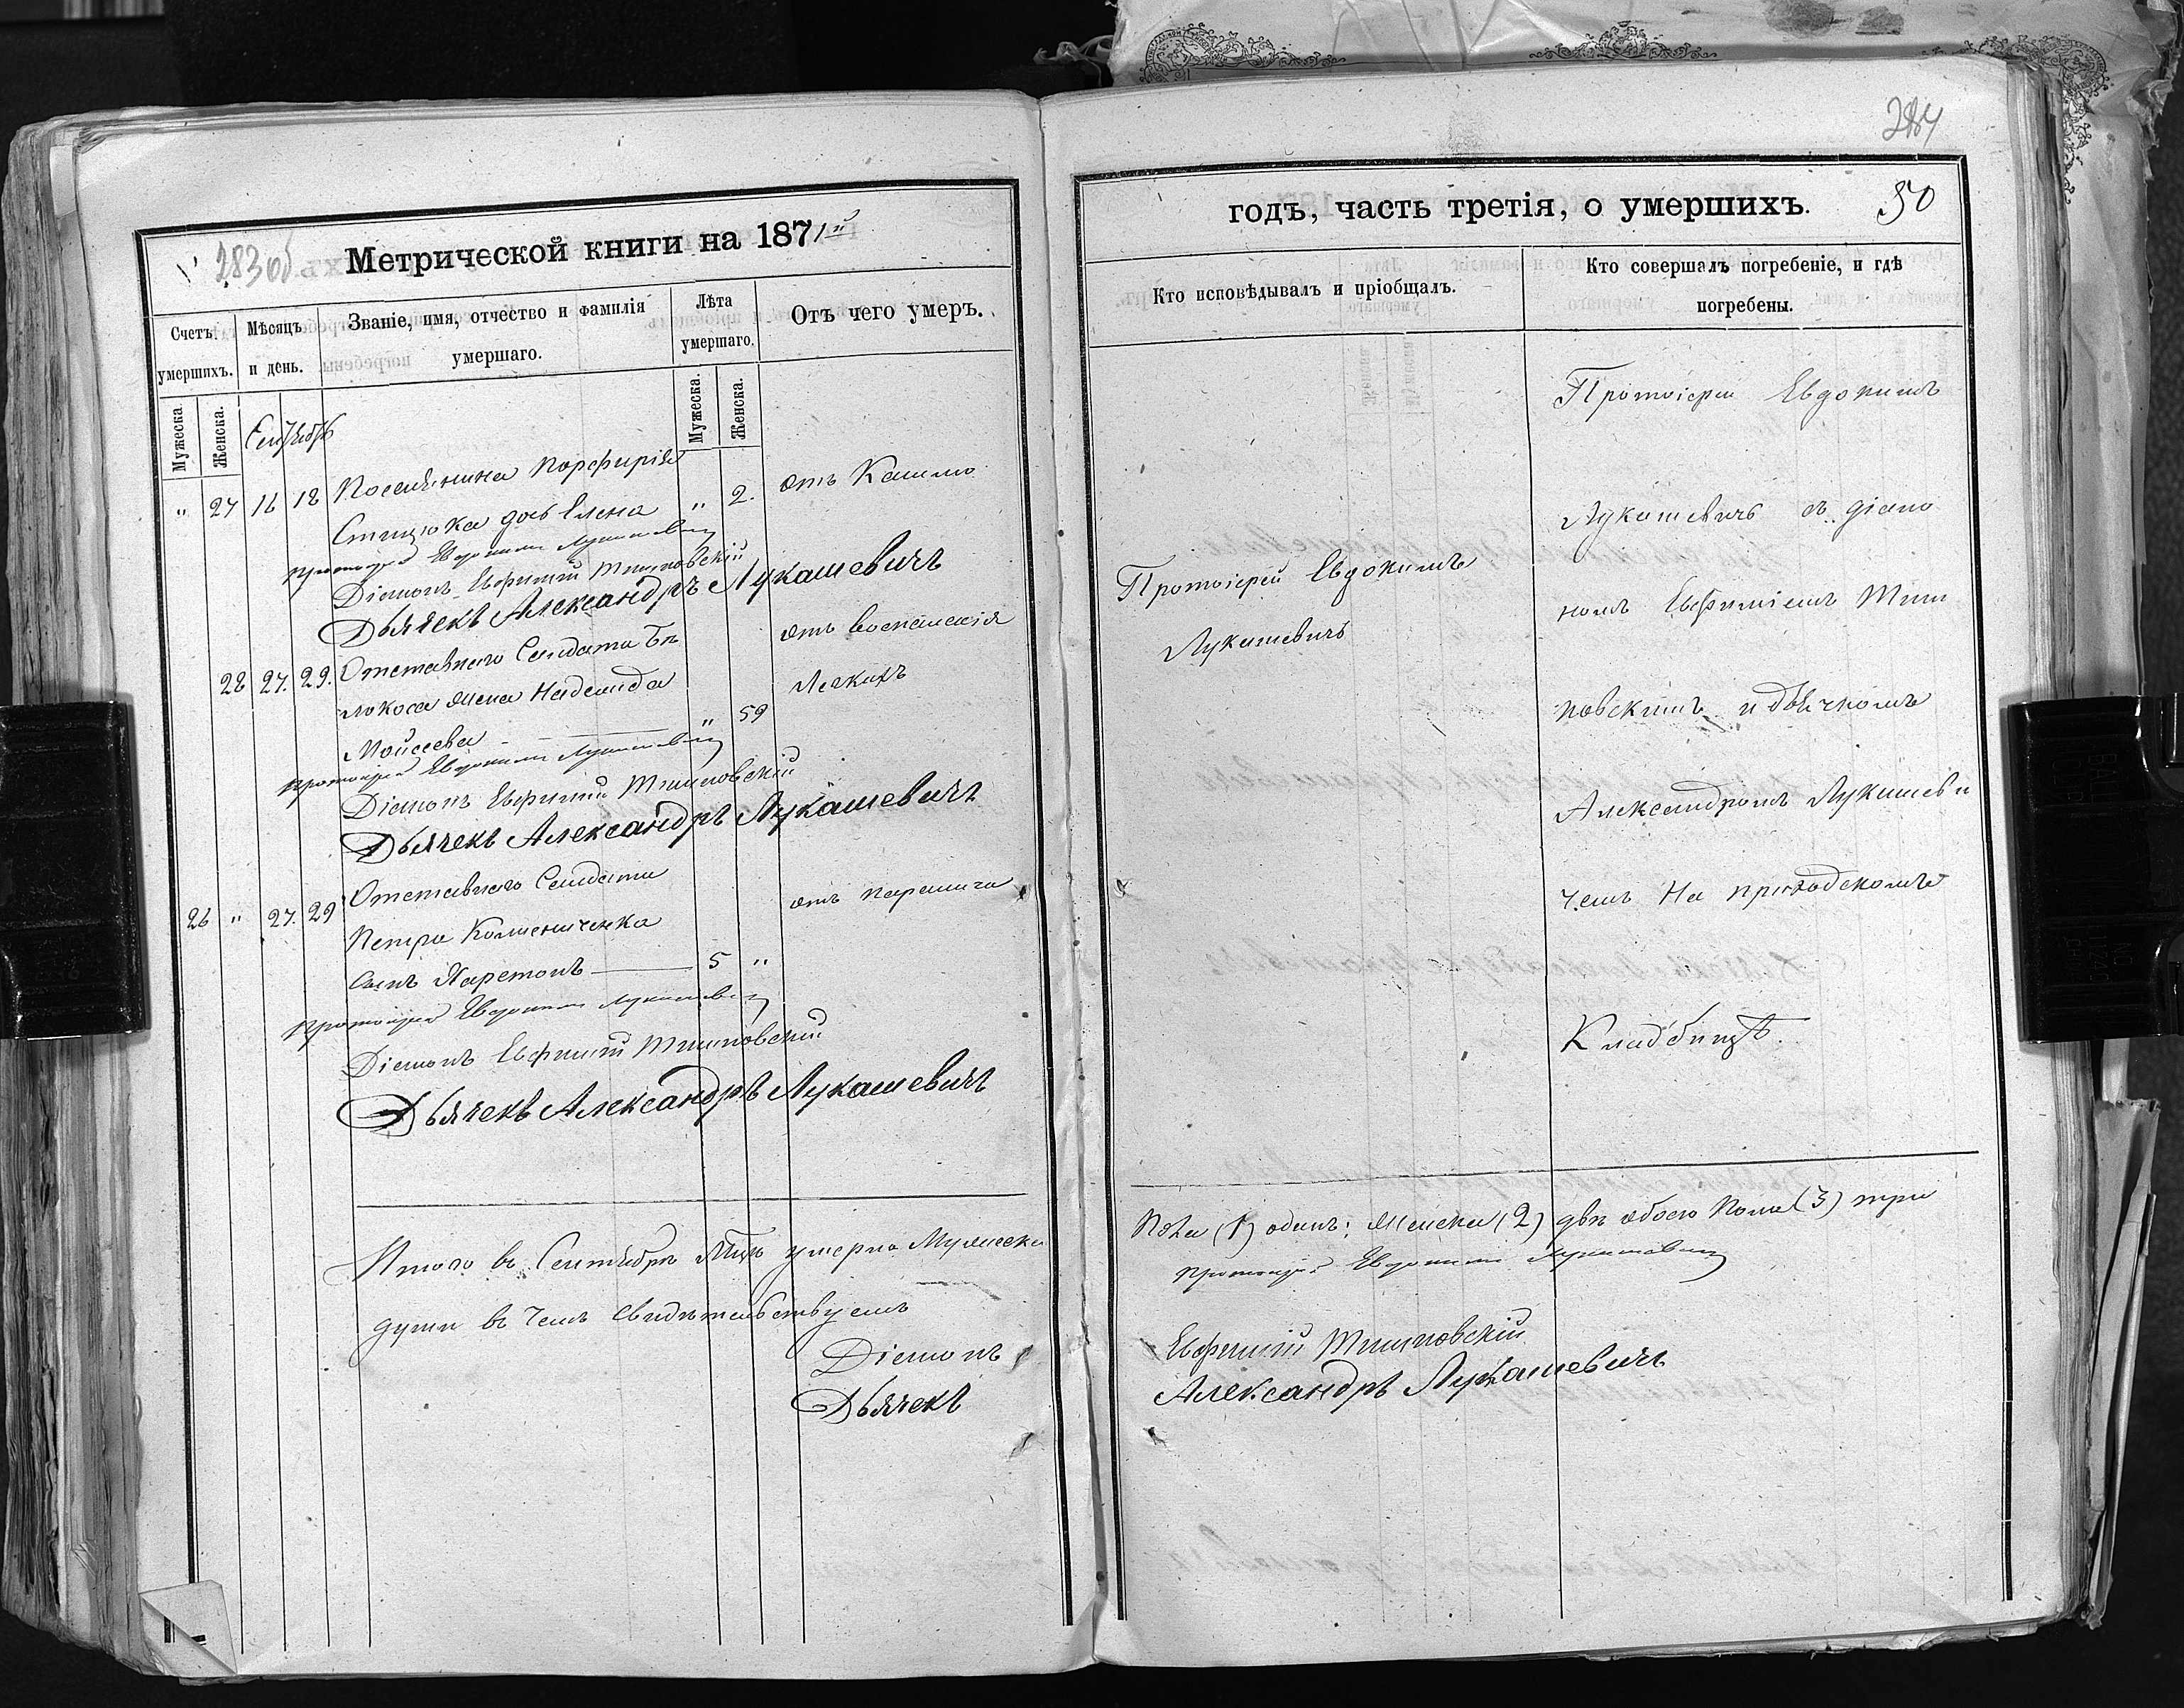 283об.
Метрической книги на 1871й
Счетъ умершихъ.
Мѣсяцъ и день.
Званіе, имя, отчество и фамилія умершаго.
Лѣта умершаго.
Отъ чего умеръ.
Мужеска.
Женска.
Мужеска.
Женска.
Сентябрь
" 27 16 18 Поселянина Порфирія отъ Кашлю
дочь Елена " 2.
Протоіерей Евдокимъ Лукашевич
Діаконъ Евфимій
Дьячекъ Александръ Лукашевичъ
28 27. 29. Отставнаго Солдата Бѣ отъ воспаленія
локоса жена Надежда Легкихъ
Мойсеева " 59
Протоіерей Евдокимъ Лукашевич
Діаконъ Евфимій
Дьячекъ Александръ Лукашевичъ
26 " 27. 29 Отставнаго Солдата отъ
Петра
сынъ Харетонъ 5 "
Протоіерей Евдокимъ Лукашевич
Діаконъ Евфимій
Дьячекъ Александръ Лукашевичъ
Итого въ Сентябрѣ Мцѣ умерло Мужеска
души въ чемъ свидѣтельствуемъ
Діаконъ
Дьячекъ
284
годъ, часть третія, о умершихъ. 50
Кто исповѣдывалъ и пріобщалъ.
Кто совершалъ погребеніе, и гдѣ погребены.
Протоіерей Евдокимъ
Лукашевичъ
Протоіерей Евдокимъ
Лукашевичъ съ діако
номъ Евфиміемъ
повскимъ и дьячкомъ
Александромъ Лукашеви
чемъ На приходскомъ
Кладбищѣ.
Пола (1) одинъ; Женска (2) двѣ обоего Пола (3) три
Протоіерей Евдокимъ Лукашевич
Евфимій
Александръ Лукашевичъ